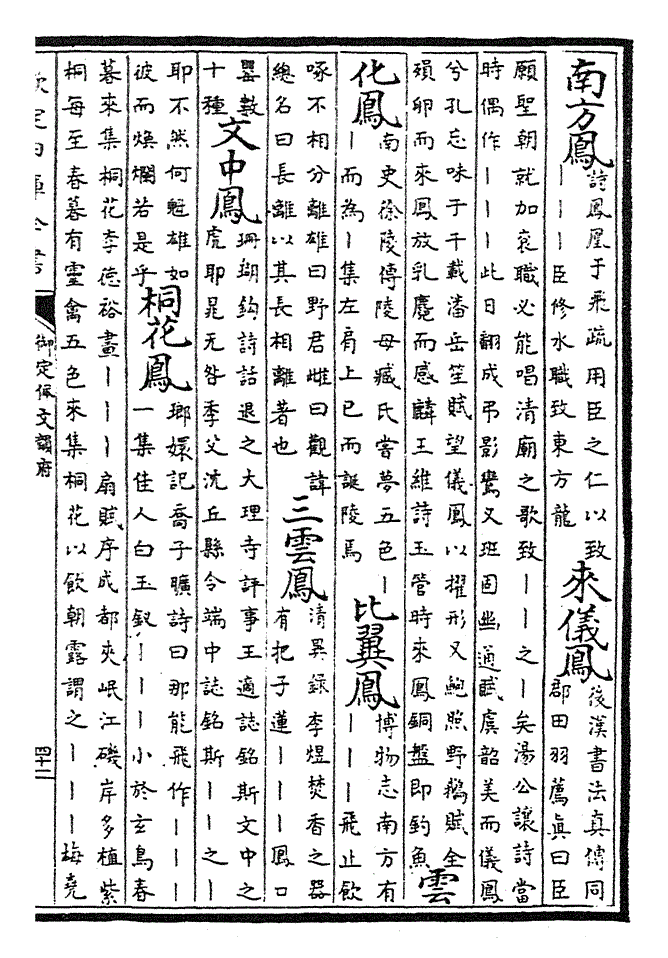 南方鳳詩鳳凰于飛疏用臣之仁以致
｜｜｜臣修水職致東方龍
來儀鳳後漢書法真傳同
郡田羽薦真曰臣
願聖朝就加袞職必能唱清廟之歌致｜｜之｜矣湯公讓詩當
時偶作｜｜｜此日翻成弔影鸞又班固幽通賦虞韶美而儀鳳
兮孔忘味于千載潘岳笙賦望儀鳳以擢形又鮑照野鵝賦全
殞卵而來鳳放乳麑而感麟王維詩玉管時來鳳銅盤即釣魚
雲
化鳳南史徐陵傳陵母臧氏嘗夢五色｜
｜而為｜集左肩上已而誕陵焉
比翼鳳博物志南方有
｜｜｜飛止飲
啄不相分離雄曰野君雌曰觀諱
總名曰長離以其長相離著也
三雲鳳清異錄李煜焚香之器
有把子蓮｜｜｜鳳口
罌數
十種
文中鳳珊瑚鈎詩話退之大理寺評事王適誌銘斯文中之
虎耶晁无咎季父沈丘縣令端中誌銘斯｜｜之｜
耶不然何魁雄如
彼而煥爛若是乎
桐花鳳瑯嬛記喬子曠詩曰那能飛作｜｜｜
一集佳人白玉釵｜｜｜小於玄鳥春
暮來集桐花李德裕畫｜｜｜扇賦序成都夾岷江磯岸多植紫
桐每至春暮有靈禽五色來集桐花以飲朝露謂之｜｜｜梅堯
欽定四庫全書
御定佩文韻府
四十二